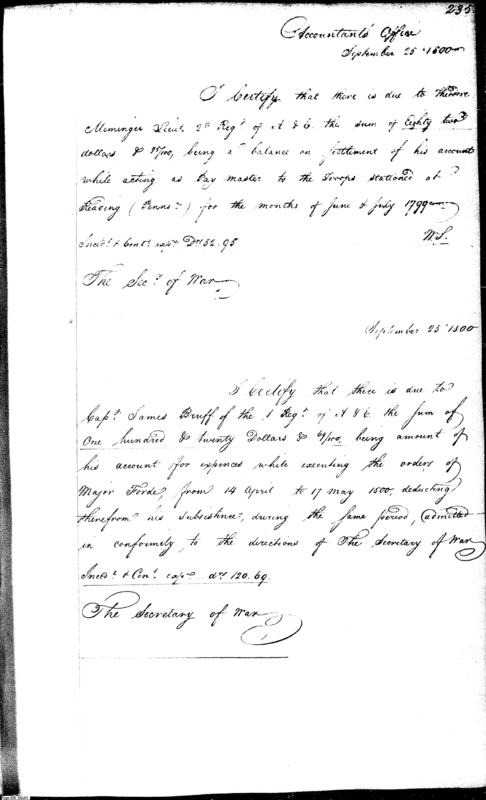 235
Accountants Office
September 25th 1800
I Certify that there is due to Theodore
Meminger Lieut. 2d Regt of A & E. the sum of Eighty two
dollars & 95/100, being a balance on settlement of his account
while acting as Pay master to the Troops stationed at
Reading (Penns.a) for the months of June & July 1799
W.S.
Incidt & Contt exps Drs 82.95
The Secy of War
September 25th 1800
I Certify that there is due to
Capt. James Bruff of the 1 Regt of A & E. the sum of
One hundred & twenty Dollars & 69/100, being amount of
his account for expences while executing the orders of
Major Forde, from 14 April to 17 May 1800, deducting
therefrom his subsistence, during the same period, admitted
in conformity, to the directions of The Secretary of War
Incidt & Cont exps drs 120.69.
The Secretary of War